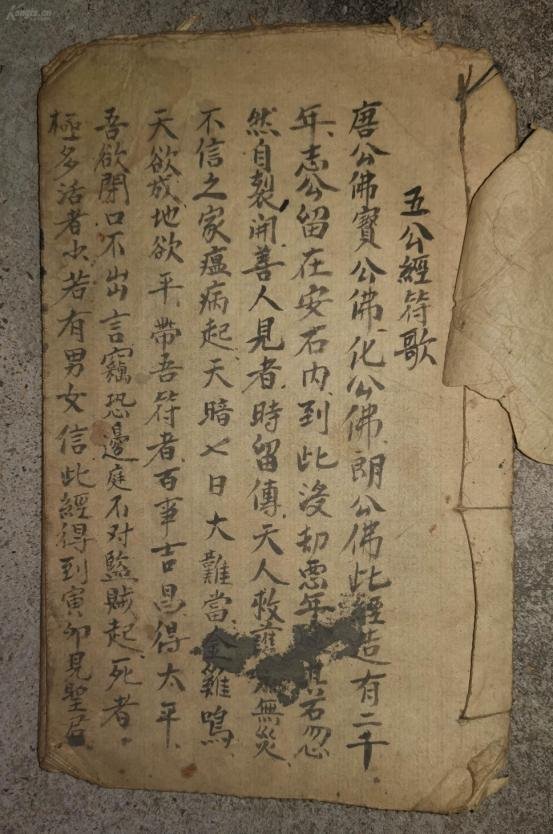 五公經符歌
唐公佛寶公佛化公佛朗公佛此經造有二千
年志公留在安石內到此沒却惡年石忽
然自裂開善人見者時留傳天人救無災
不信之家瘟病起天暗七日大難當金雞鳴
天欲放地欲平帶吾符者百事吉昌得太平
吾欲閉口不出言竊恐邊庭不对藍賊起死者
極多活者少若有男女信此經得到寅卯見聖君
Kongfz.cn